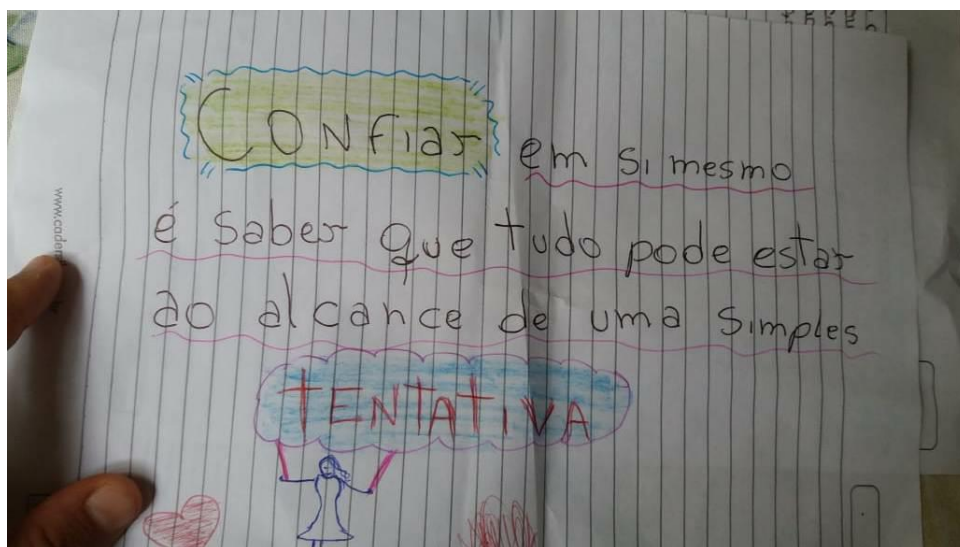 Confiar em si mesmo
é saber que tudo pode estar
ao alcance de uma simples
TENTATIVA